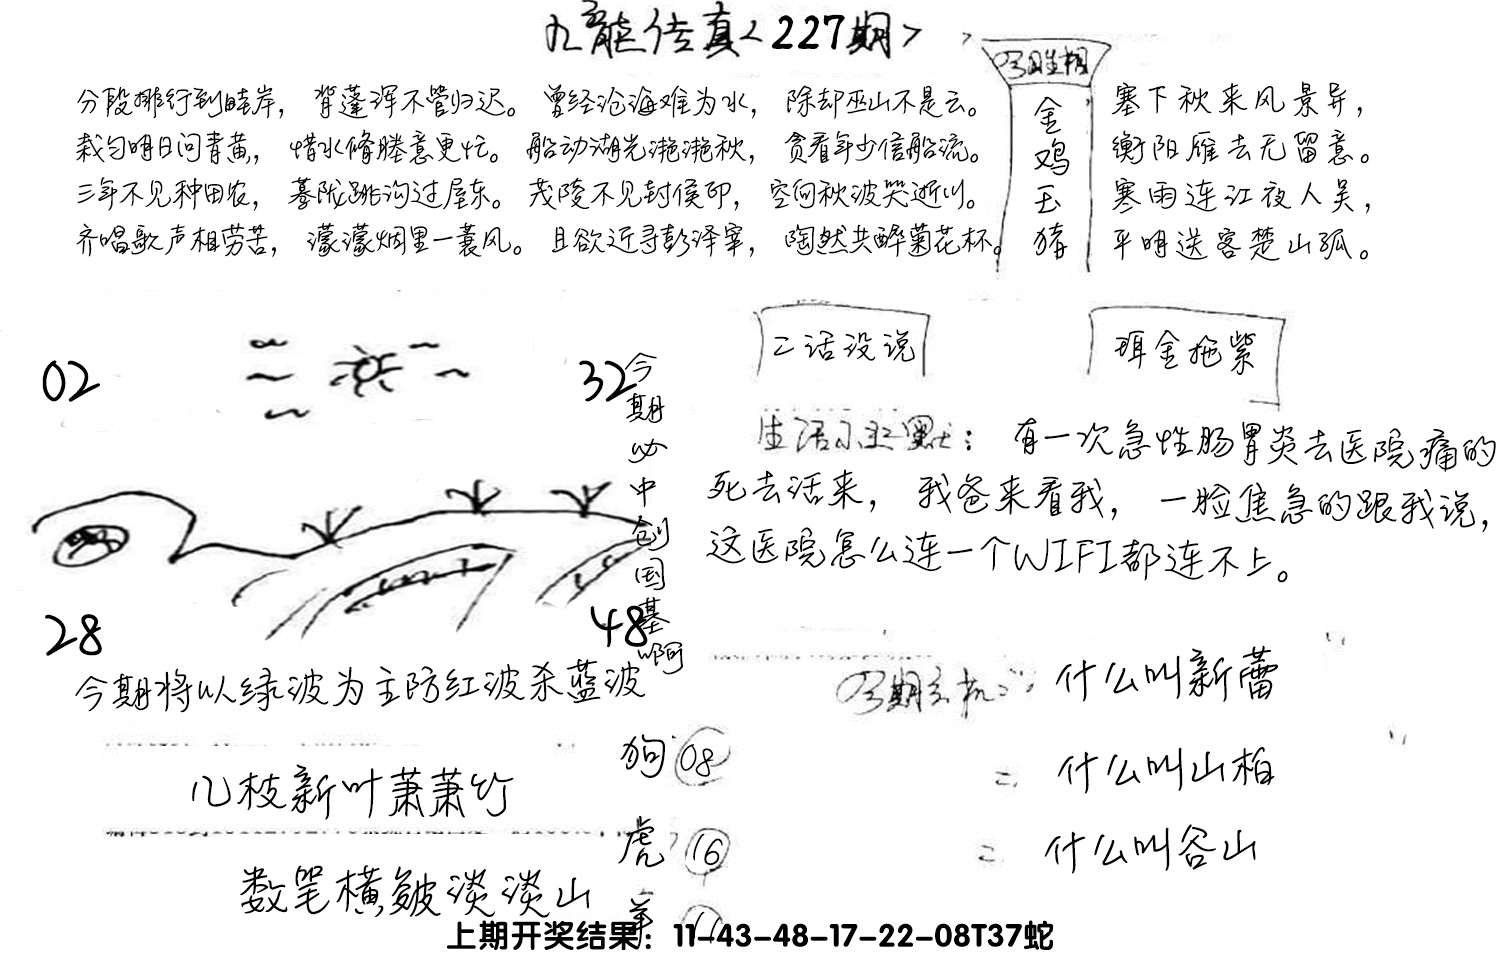 九龍传真<227期>
分段排行到畦岸，背蓬浑不管归迟。曾经沧海难为水，除却巫山不是云。
栽匀明日问青黄，惜水脩塍意更忙。船动湖光滟滟秋，贪看年少信船流。
三年不见种田农，蓦陇跳沟过屋东。茂陵不见封侯印，空向秋波哭逝川。
齐唱歌声相劳苦，濛濛烟里一蓑风。且欲近寻彭泽宰，陶然共醉菊花杯。
金鸡玉猪
塞下秋来风景异，
衡阳雁去无留意。
寒雨连江夜入吴，
平明送客楚山孤。
02
32
28
48
今期必中创国基啊
今期将以绿波为主防红波杀蓝波
二话没说
珥金拖紫
生活幽默：有一次急性肠胃炎去医院痛的
死去活来，我爸来看我，一脸焦急的跟我说，
这医院怎么连一个WIFI都连不上。
什么叫新蕾
二 什么叫山柏
二 什么叫谷山
几枝新叶萧萧竹
数笔横皴淡淡山
狗 08
虎 16
羊
上期开奖结果：11-43-48-17-22-08T37蛇